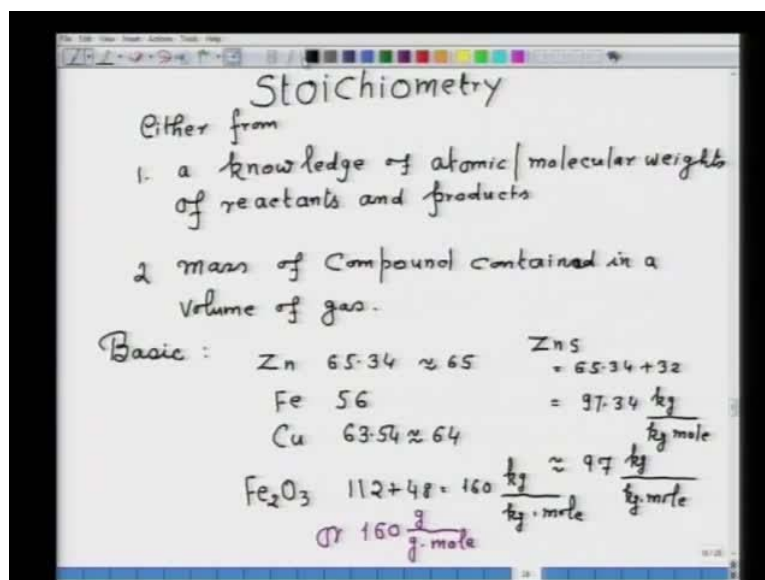 File Edit View Insert Actions Tools Help
Stoichiometry
Either from
1. a knowledge of atomic/molecular weights
of reactants and products
2 mass of Compound contained in a
volume of gas.
Basic :
Zn 65.34 ≈ 65
Fe 56
Cu 63.54 ≈ 64
Fe2O3 112+48 = 160 kg/kg.mole
or 160 g/g.mole
ZnS
= 65.34+32
= 97.34 kg/kg mole
≈ 97 kg/kg.mole